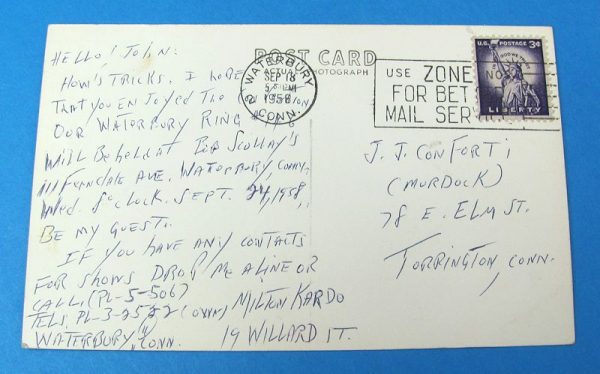 POST CARD
ACTUAL PHOTOGRAPH
WATERBURY
SEP 18
PM
1958
CONN.
USE ZONE NO
FOR BET
MAIL SERV
U.S. POSTAGE 3¢
IN GOD WE TRUST
LIBERTY
HELLO! JOHN:
HOW'S TRICKS. I HOPE
THAT YOU ENJOYED THE
OUR WATERBURY RING
WILL BE HELD AT BOB SCOLLAY'S
111 FERNDALE AVE. WATERBURY, CONN.
WED. 8 O'CLOCK. SEPT. 24, 1958.
BE MY GUEST.
IF YOU HAVE ANY CONTACTS
FOR SHOWS DROP ME A LINE OR
CALL, (PL-5-5067
TELS. PL-3-2522 (OWN) MILTON KARDO
WATERBURY, CONN. 19 WILLARD ST.
J. J. CONFORTI
(MURDOCK)
78 E. ELM ST.
TORRINGTON, CONN.